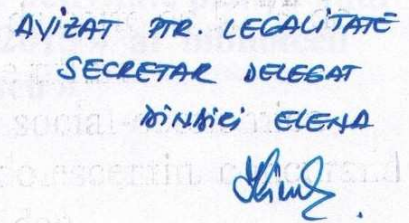 AVIZAT PTR. LEGALITATE
SECRETAR DELEGAT
ELENA